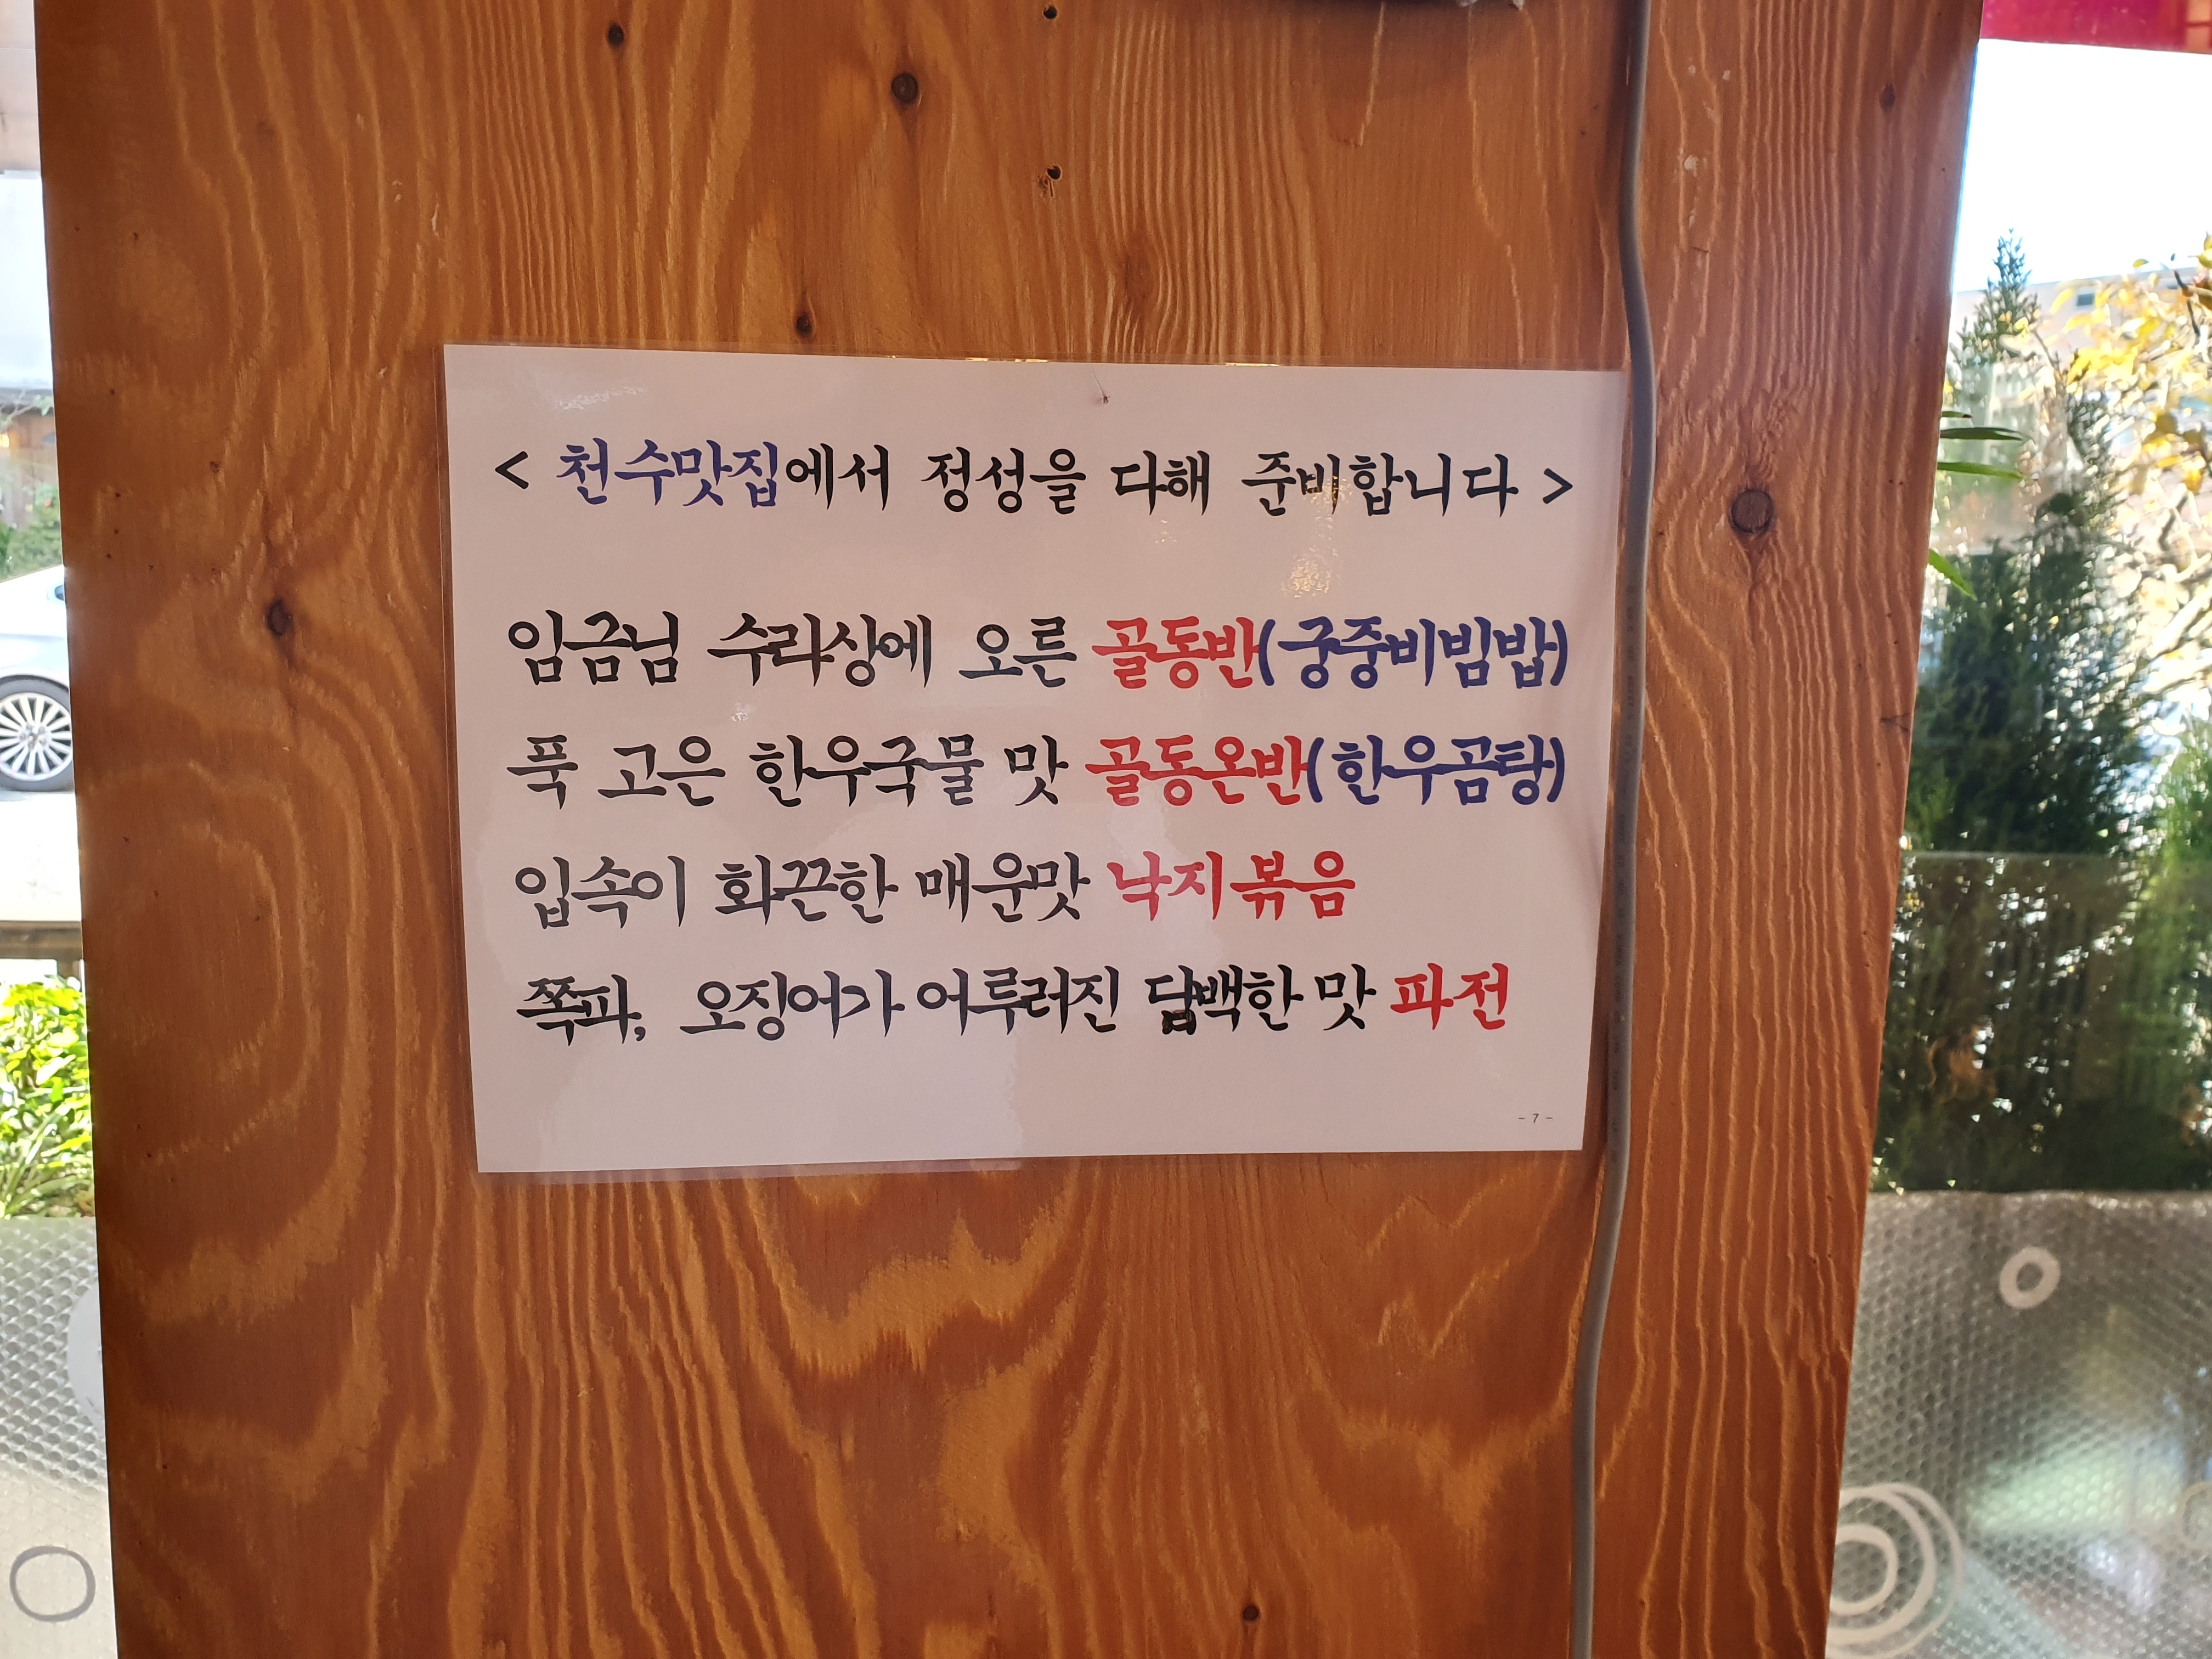 < 천수맛집에서 정성을 다해 준비합니다 >
임금님 수라상에 오른 골동반(궁중비빔밥)
푹 고은 한우국물 맛 골동온반(한우곰탕)
입속이 화끈한 매운맛 낙지볶음
쪽파, 오징어가 어루러진 담백한 맛 파전
- 7 -